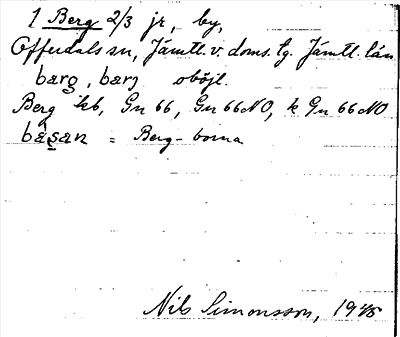 1 Berg 2/3 jr, by,
Offerdals sn, Jämtl. v. doms. tg. Jämtl. län
bærg, bærj oböjl.
Berg kb, Gn 66, Gn 66 NO, k Gn 66 NO
= Berg-borna
Nils Simonsson, 19